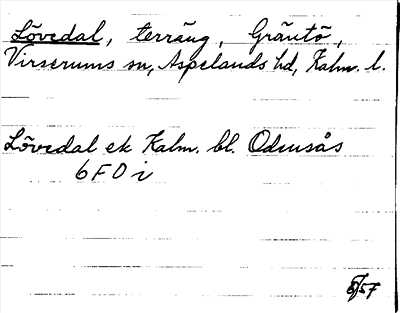 Lövedal, terräng, Gräntö,
Virserums sn, Aspelands hd, Kalm. l.
Lövedal ek Kalm. bl. Odensås
6F0i
57